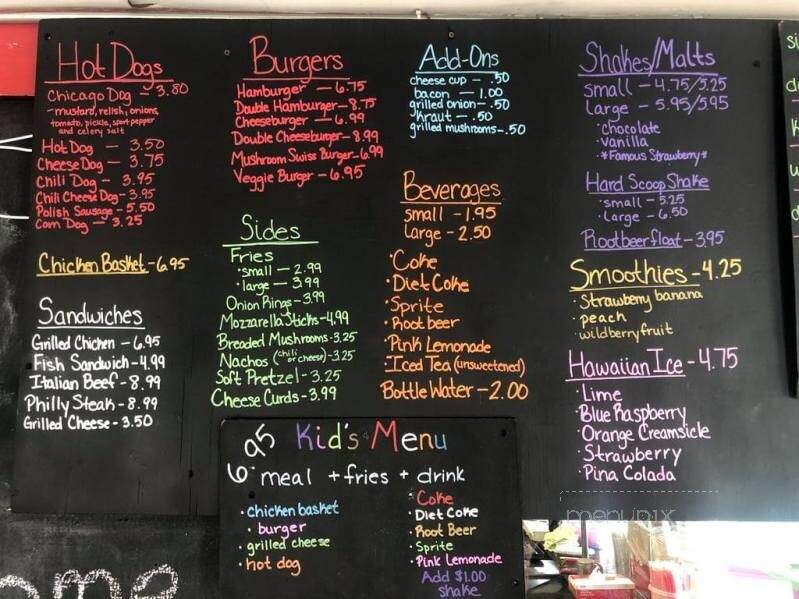 Hot Dogs
Chicago Dog - 3.80
- mustard, relish, onions,
tomato, pickle, sport pepper
and celery salt
Hot Dog - 3.50
Cheese Dog - 3.75
Chili Dog - 3.95
Chili Cheese Dog - 3.95
Polish Sausage - 5.50
Corn Dog - 3.25
Chicken Basket - 6.95
Sandwiches
Grilled Chicken - 6.95
Fish Sandwich - 4.99
Italian Beef - 8.99
Philly Steak - 8.99
Grilled Cheese - 3.50
Burgers
Hamburger - 6.75
Double Hamburger - 8.75
Cheeseburger - 6.99
Double Cheeseburger - 8.99
Mushroom Swiss Burger - 6.99
Veggie Burger - 6.95
Sides
Fries
• small - 2.99
• large - 3.99
Onion Rings - 3.99
Mozzarella Sticks - 4.99
Breaded Mushrooms - 3.25
Nachos (chili or cheese) - 3.25
Soft Pretzel - 3.25
Cheese Curds - 3.99
Add-Ons
cheese cup - .50
bacon - 1.00
grilled onion - .50
Kraut - .50
grilled mushrooms - .50
Beverages
small - 1.95
large - 2.50
• Coke
• Diet Coke
• Sprite
• Root beer
• Pink Lemonade
• Iced Tea (unsweetened)
Bottle Water - 2.00
Shakes/Malts
small - 4.75/5.25
large - 5.95/5.95
• chocolate
• vanilla
• *Famous Strawberry*
Hard Scoop Shake
• small - 5.25
• large - 6.50
Rootbeer float - 3.95
Smoothies - 4.25
• Strawberry banana
• peach
• wildberry fruit
Hawaiian Ice - 4.75
• Lime
• Blue Raspberry
• Orange Creamsicle
• Strawberry
• Pina Colada
Kid's Menu
6.95
meal + fries + drink
• chicken basket
• burger
• grilled cheese
• hot dog
• Coke
• Diet Coke
• Root Beer
• Sprite
• Pink Lemonade
Add $1.00
shake
menupix